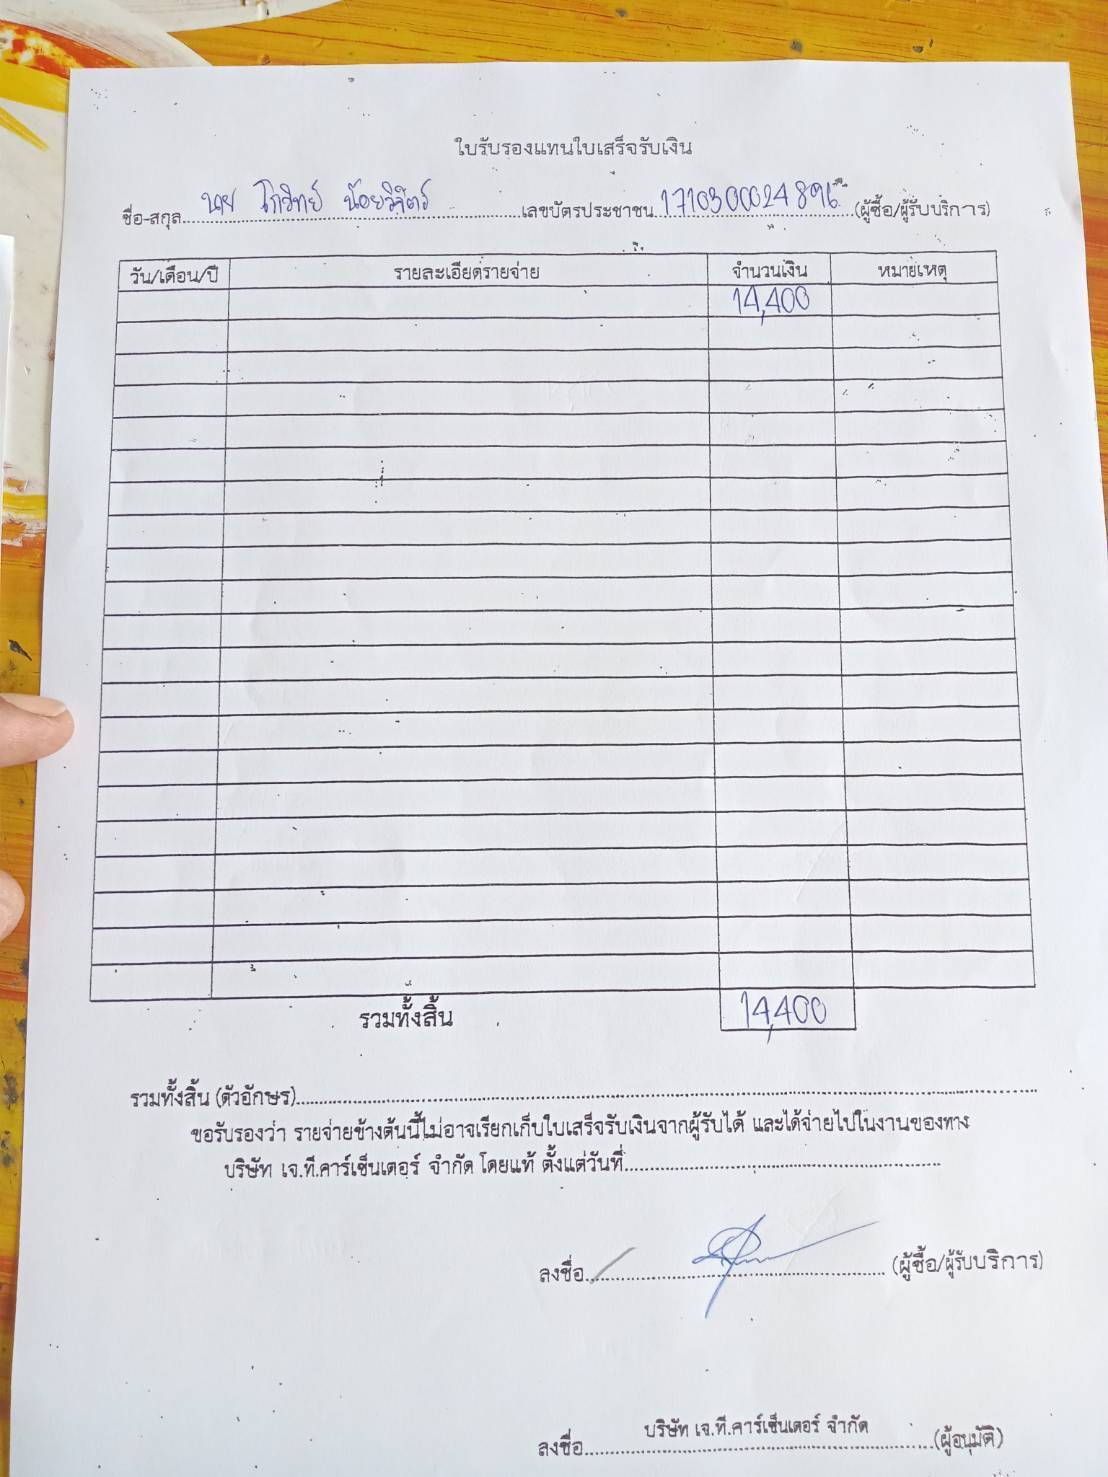 ใบรับรองแทนใบเสร็จรับเงิน
ชื่อ-สกุล นาย โกวิทย์ น้อยวิจิตร์ เลขบัตรประชาชน 1710300024896 (ผู้ซื้อ/ผู้รับบริการ)
วัน/เดือน/ปี รายละเอียดรายจ่าย จำนวนเงิน หมายเหตุ
14,400
รวมทั้งสิ้น 14,400
รวมทั้งสิ้น (ตัวอักษร)
ขอรับรองว่า รายจ่ายข้างต้นนี้ไม่อาจเรียกเก็บใบเสร็จรับเงินจากผู้รับได้ และได้จ่ายไปในงานของทาง
บริษัท เจ.ที.คาร์เซ็นเตอร์ จำกัด โดยแท้ ตั้งแต่วันที่
ลงชื่อ (ผู้ซื้อ/ผู้รับบริการ)
บริษัท เจ.ที.คาร์เซ็นเตอร์ จำกัด
ลงชื่อ (ผู้อนุมัติ)